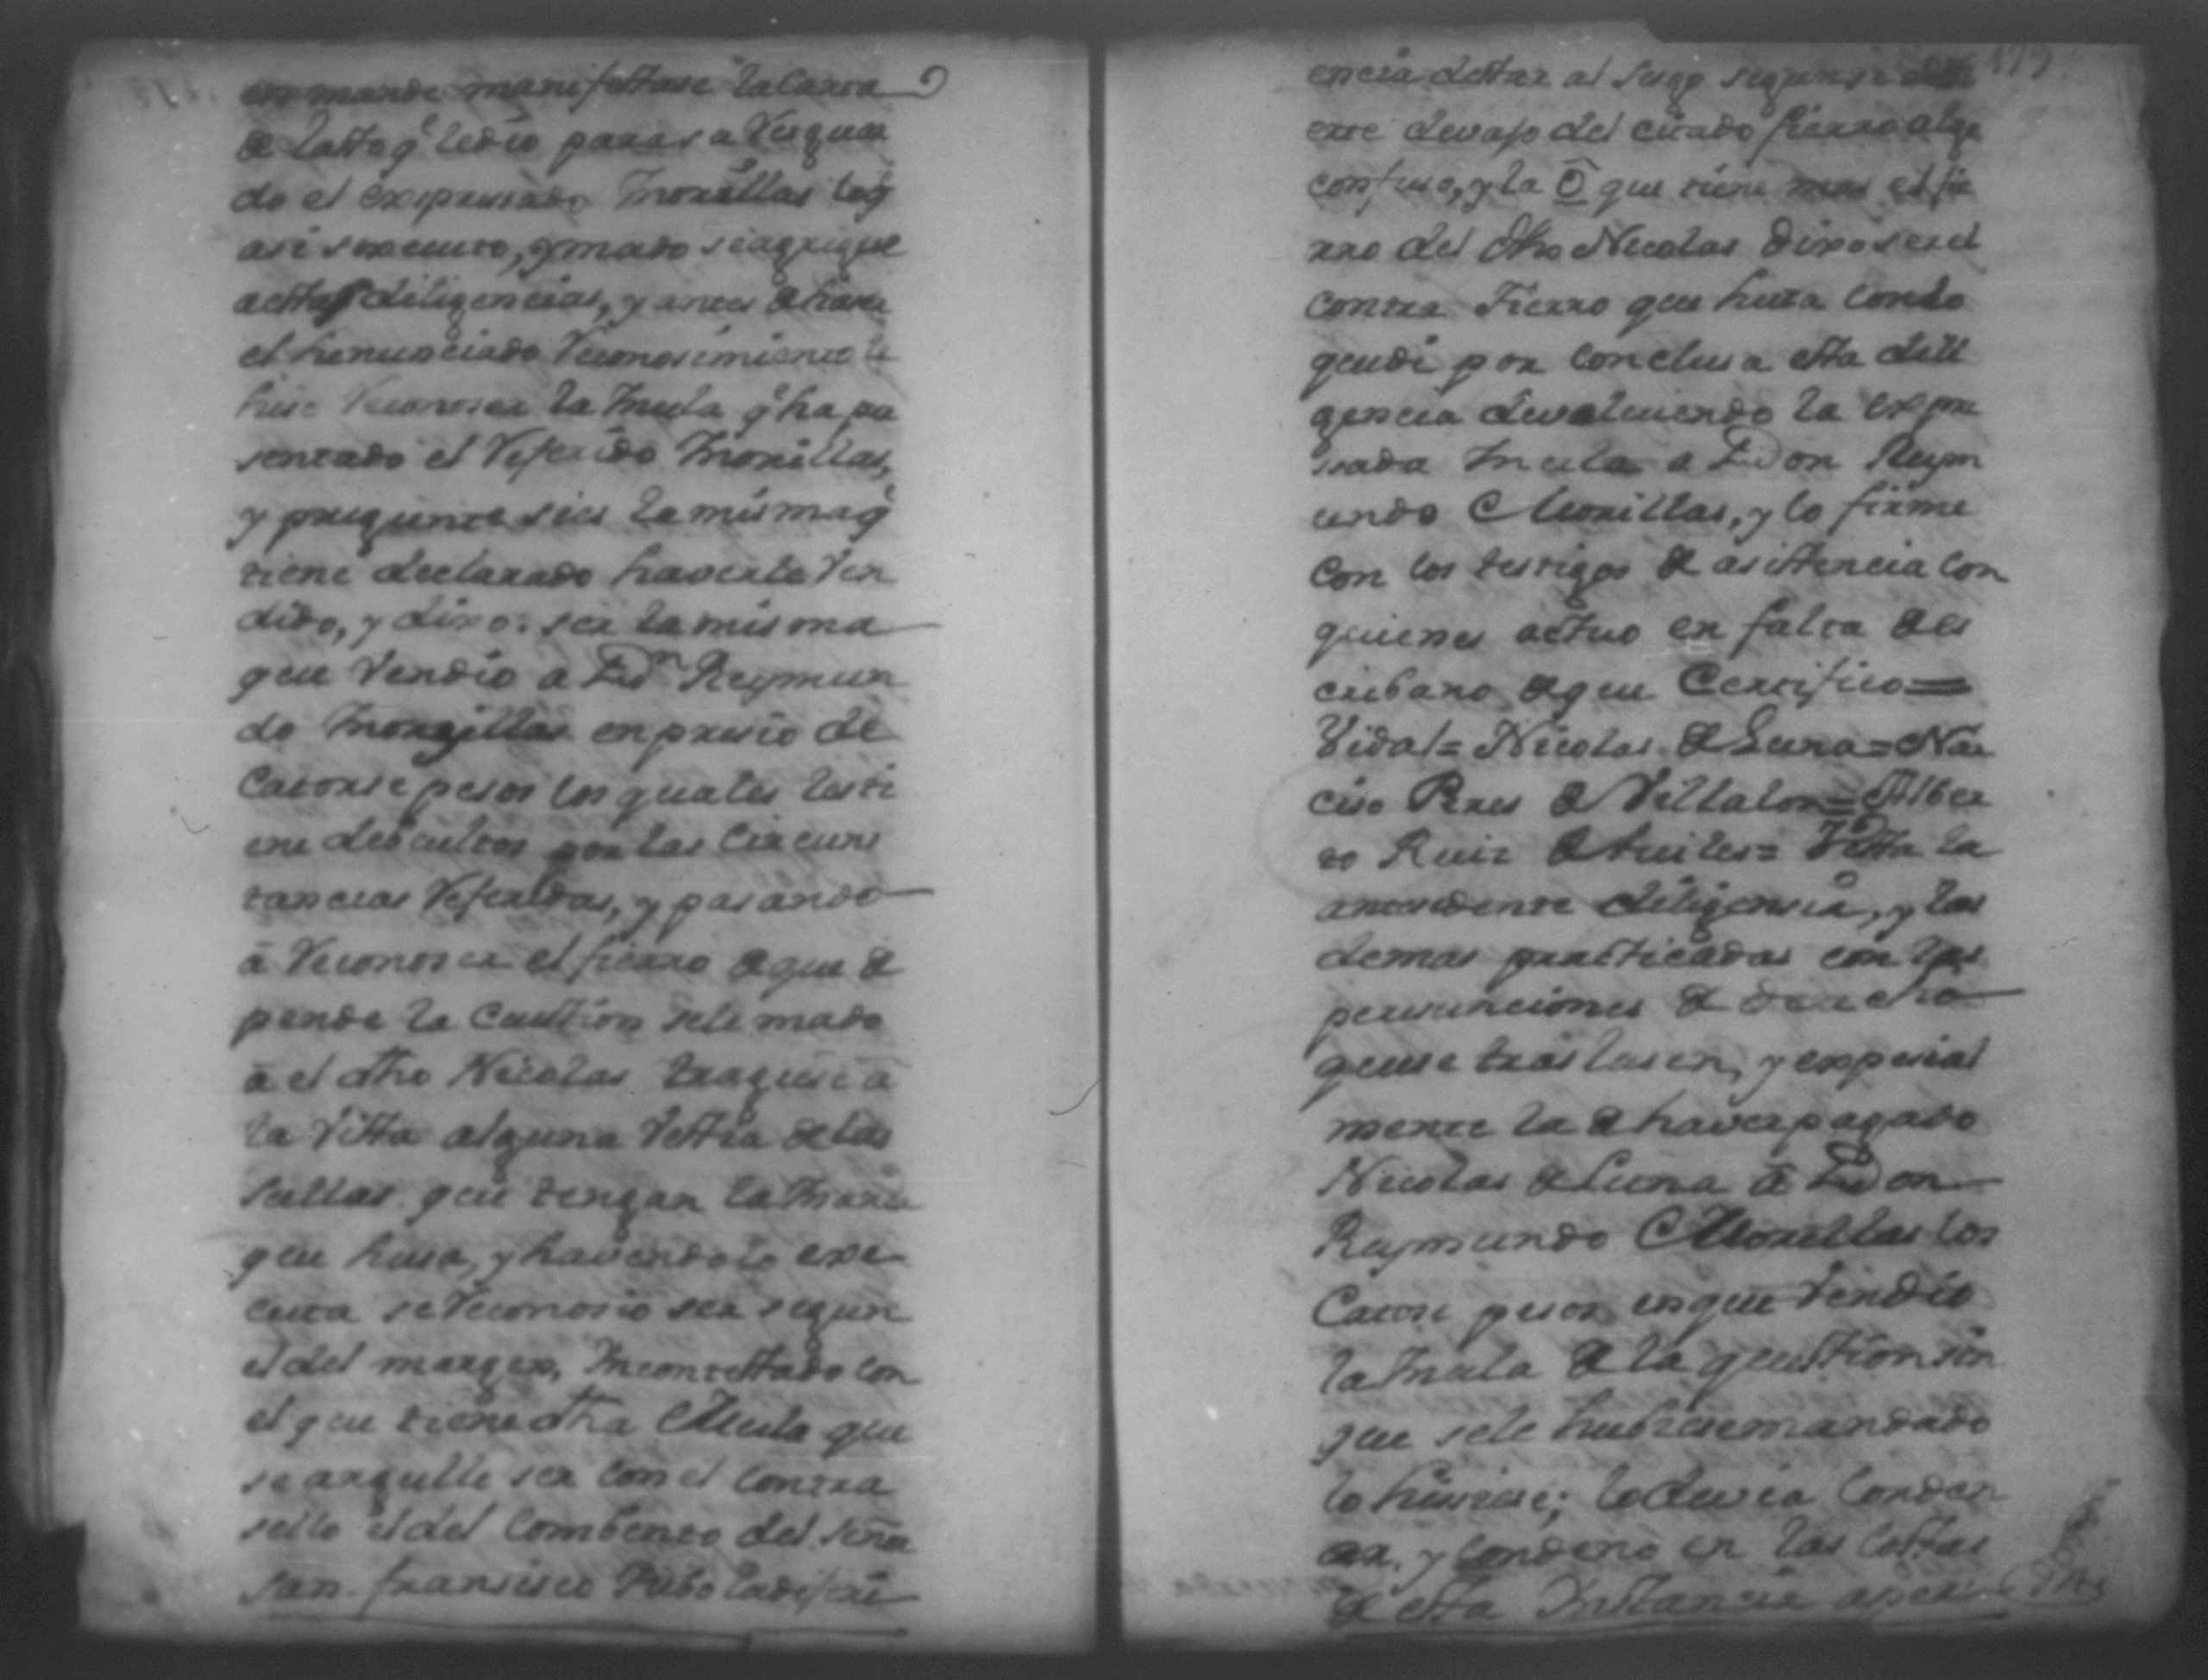 en mande manifestase la Carta
de lasto q.e le dio para su Resguar
do el expresado Morillas loq.e
asi se executo, y mado se agregue
a estas diligencias, y antes de haser
el henunciado Reconosimiento le
hise Reconoser la Mula q.e ha pre
sentado el Referido Morillas,
y pregunte si es la mismaq.e
tiene declarado haverle Ven
dido, y dixo. ser la misma
que Vendio a Dn Reymun
do Morillas en presio de
Catorse pesos los quales les ti
ene debueltos por las Circuns
tancias Referidas, y pasando
a Reconoser el fierro de que de
pende la Cuestion se le mado
a el dho Nicolas traquese a
la Vista alguna Vestia de las
sullas que tengan la Marca
que husa, y haviendolo exe
cuta se Reconosio ser segun
el del margen, Yncontestado con
el que tiene dha Mula que
se argulle ser con el contra
sello el del Combento del señor
San. fransisco Pubo la difer
encia de estar al sesgo segun se adbi
erte devajo del citado fierro algo
confuso, y la O que tiene mas el fie
rro del dho Nicolas Dixo ser el
contra Fierro que husa con lo
que di por conclusa esta dili
gencia devolviendo la expre
sada Mula a Don Reym
undo Morillas, y lo firme
con los testigos de asistencia con
quienes actuo en falta de es
cribano de que Certifico=
Vidal= Nicolas de Luna= Nar
ciso Peres de Villalon= Alber
to Ruiz de = Vista la
antesedente diligensia, y las
demas practicadas con las
de derecho
que se traslusen, y expesial
mente la de haver pagado
Nicolas de Luna a Don
Raymundo Morillas los
Catorse pesos en que Vendio
la Mula de la question sin
que se le hubiese mandado
lo hisiese; lo devia Conden
ar, y Condeno en las Costas
de esta Ynstancia